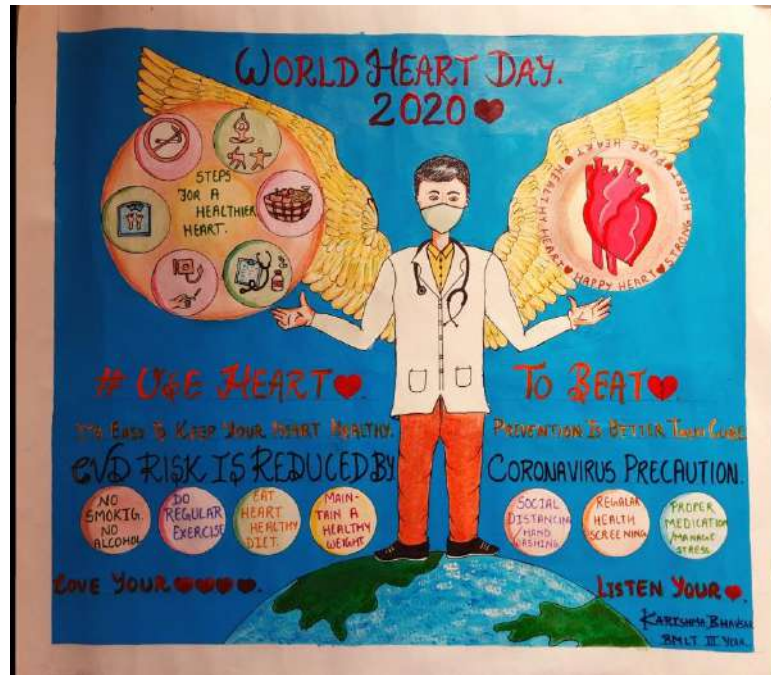 WORLD HEART DAY.
2020
STEPS
FOR A
HEALTHIER
HEART.
HEALTHY HEART HAPPY HEART STRONG HEART PURE HEART
# USE HEART
TO BEAT
ITS EASY TO KEEP YOUR HEART HEALTHY.
PREVENTION IS BETTER THAN CURE
CVD RISK IS REDUCED BY
CORONAVIRUS PRECAUTION.
NO
SMOKIG.
NO
ALCOHOL
DO
REGULAR
EXERCISE
EAT
HEART
HEALTHY
DIET.
MAIN-
TAIN A
HEALTHY
WEIGHT
SOCIAL
DISTANCING
/HAND
WASHING
REGALAR
HEALTH
SCREENING
PROPER
MEDICATION
/MANAGE
STRESS
LOVE YOUR
LISTEN YOUR
KARISHMA BHAVSAR
BMLT III YEAR